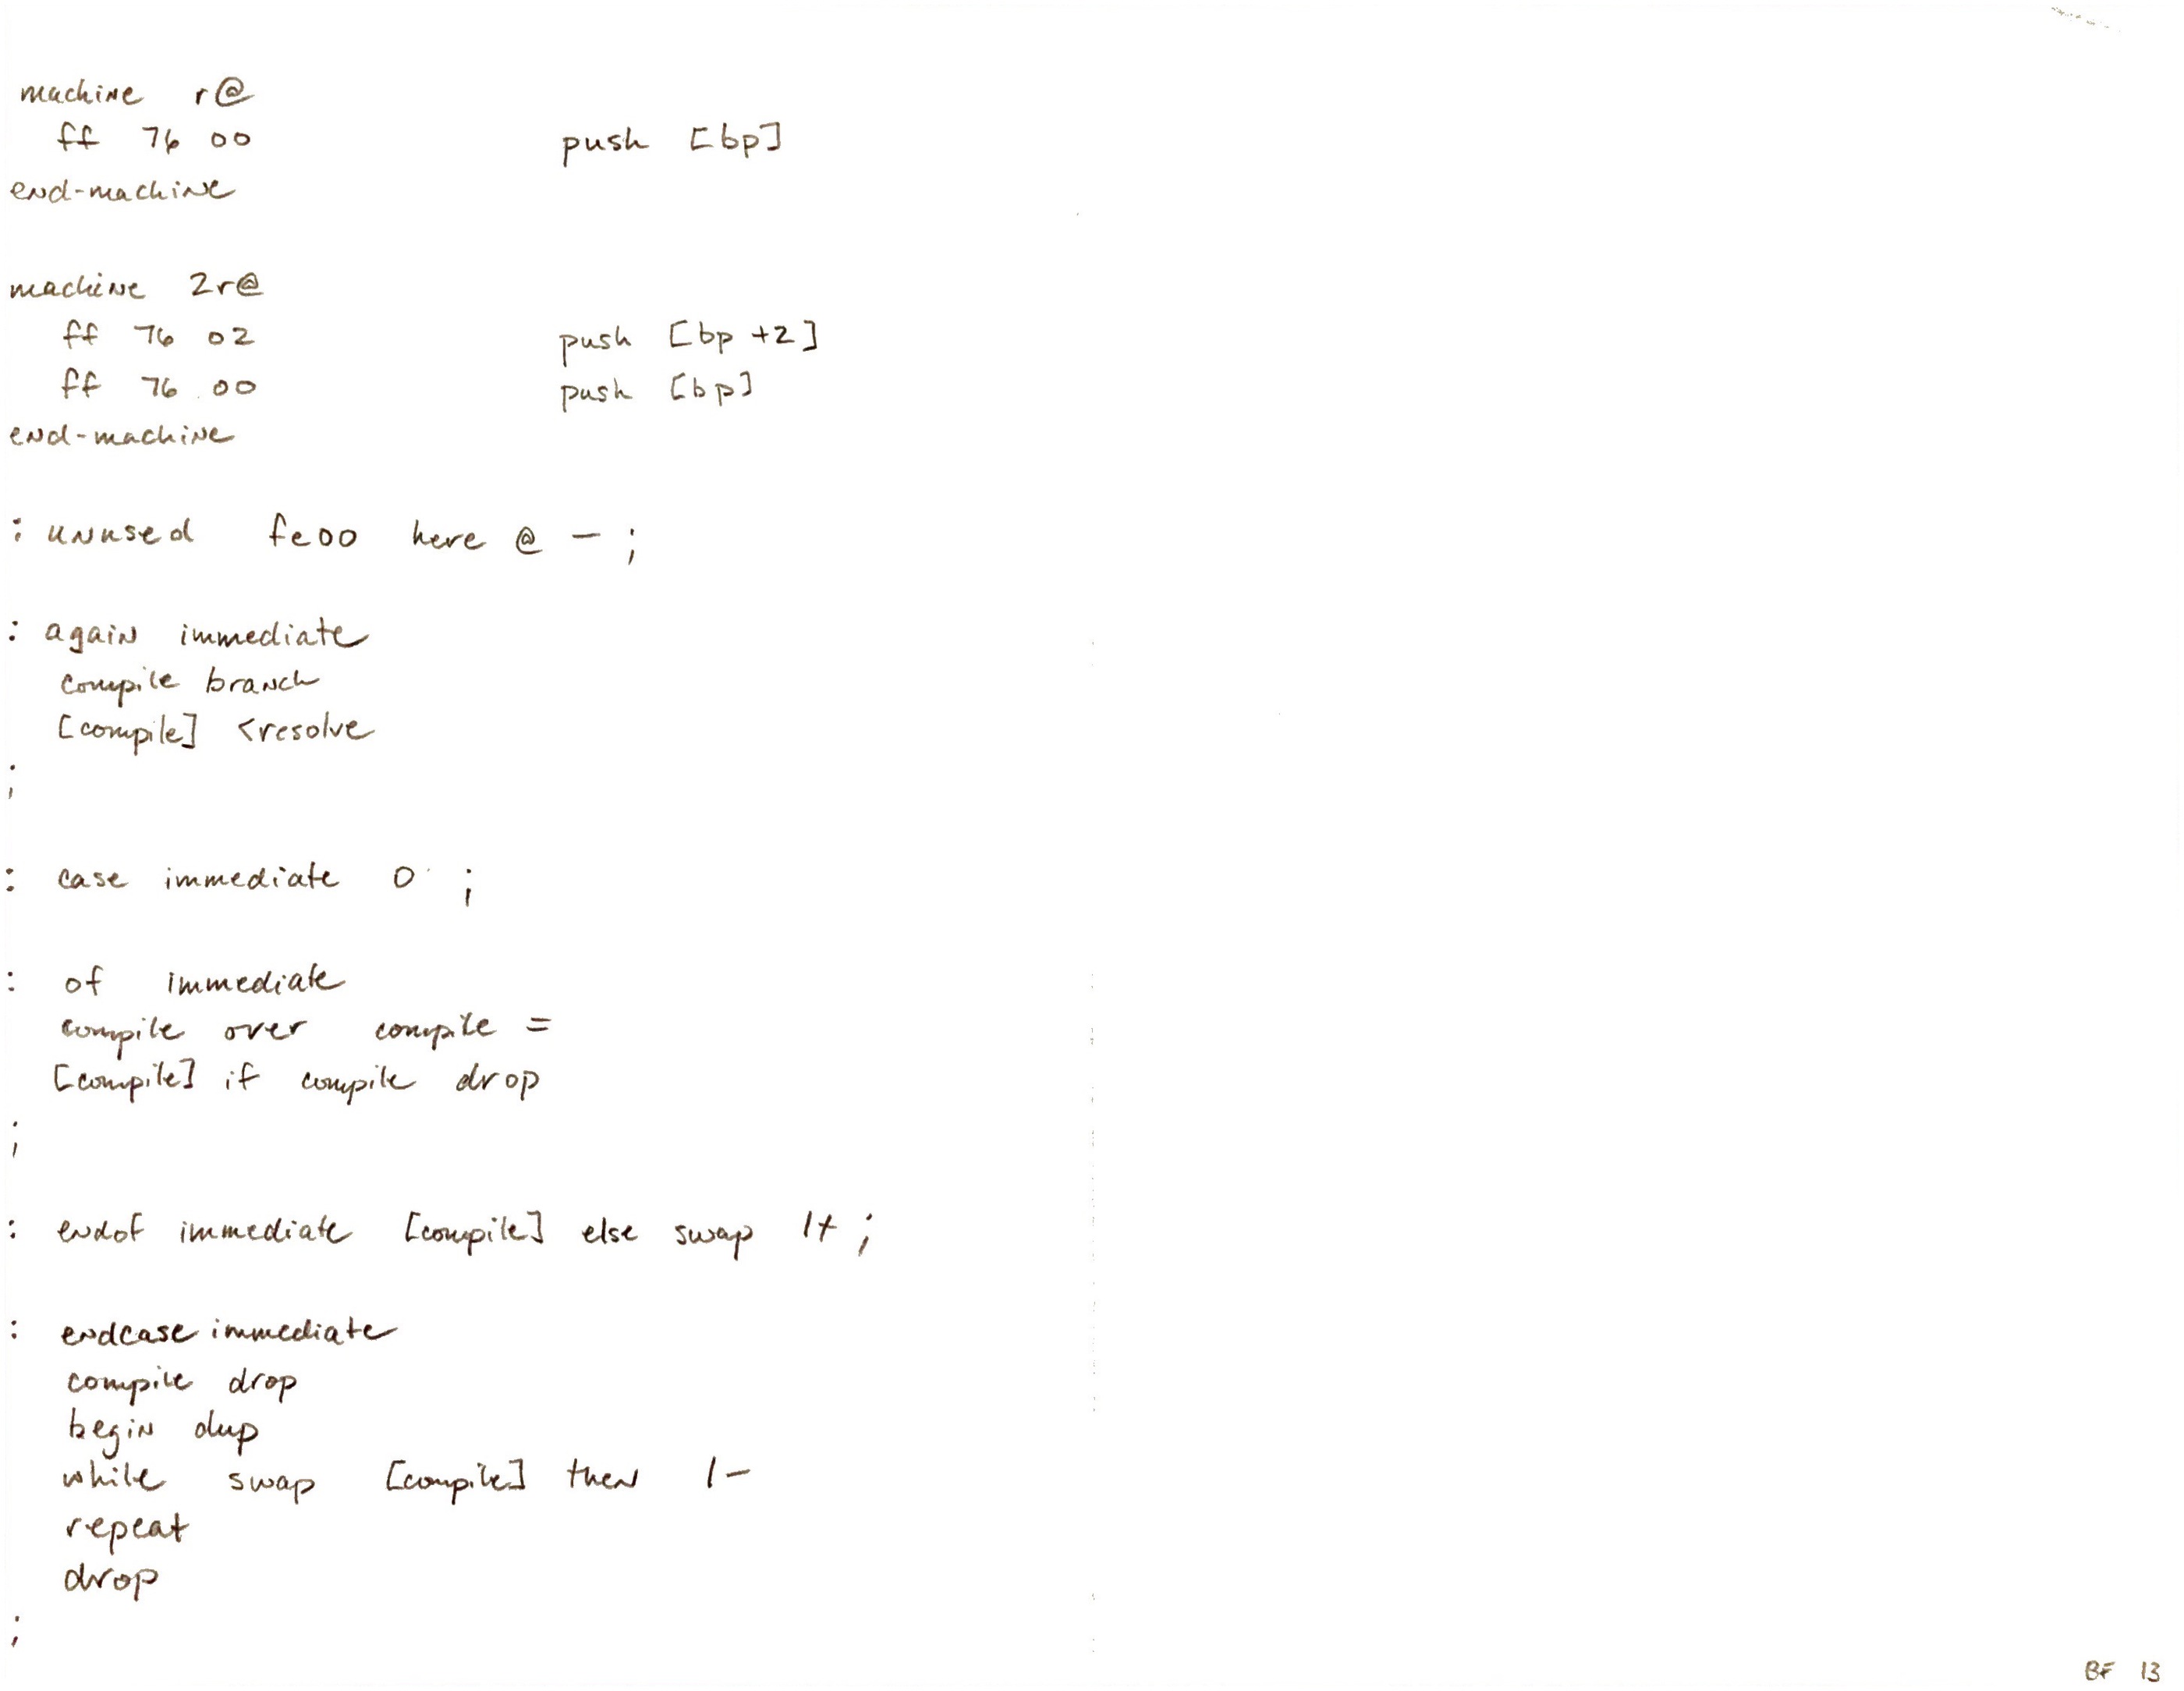 machine r@
ff 76 00 push [bp]
end-machine
machine 2r@
ff 76 02 push [bp +2]
ff 76 00 push [bp]
end-machine
: unused fe00 here @ - ;
: again immediate
compile branch
[compile] <resolve
;
: case immediate 0 ;
: of immediate
compile over compile =
[compile] if compile drop
;
: endof immediate [compile] else swap 1+ ;
: endcase immediate
compile drop
begin dup
while swap [compile] then 1-
repeat
drop
;
BF 13